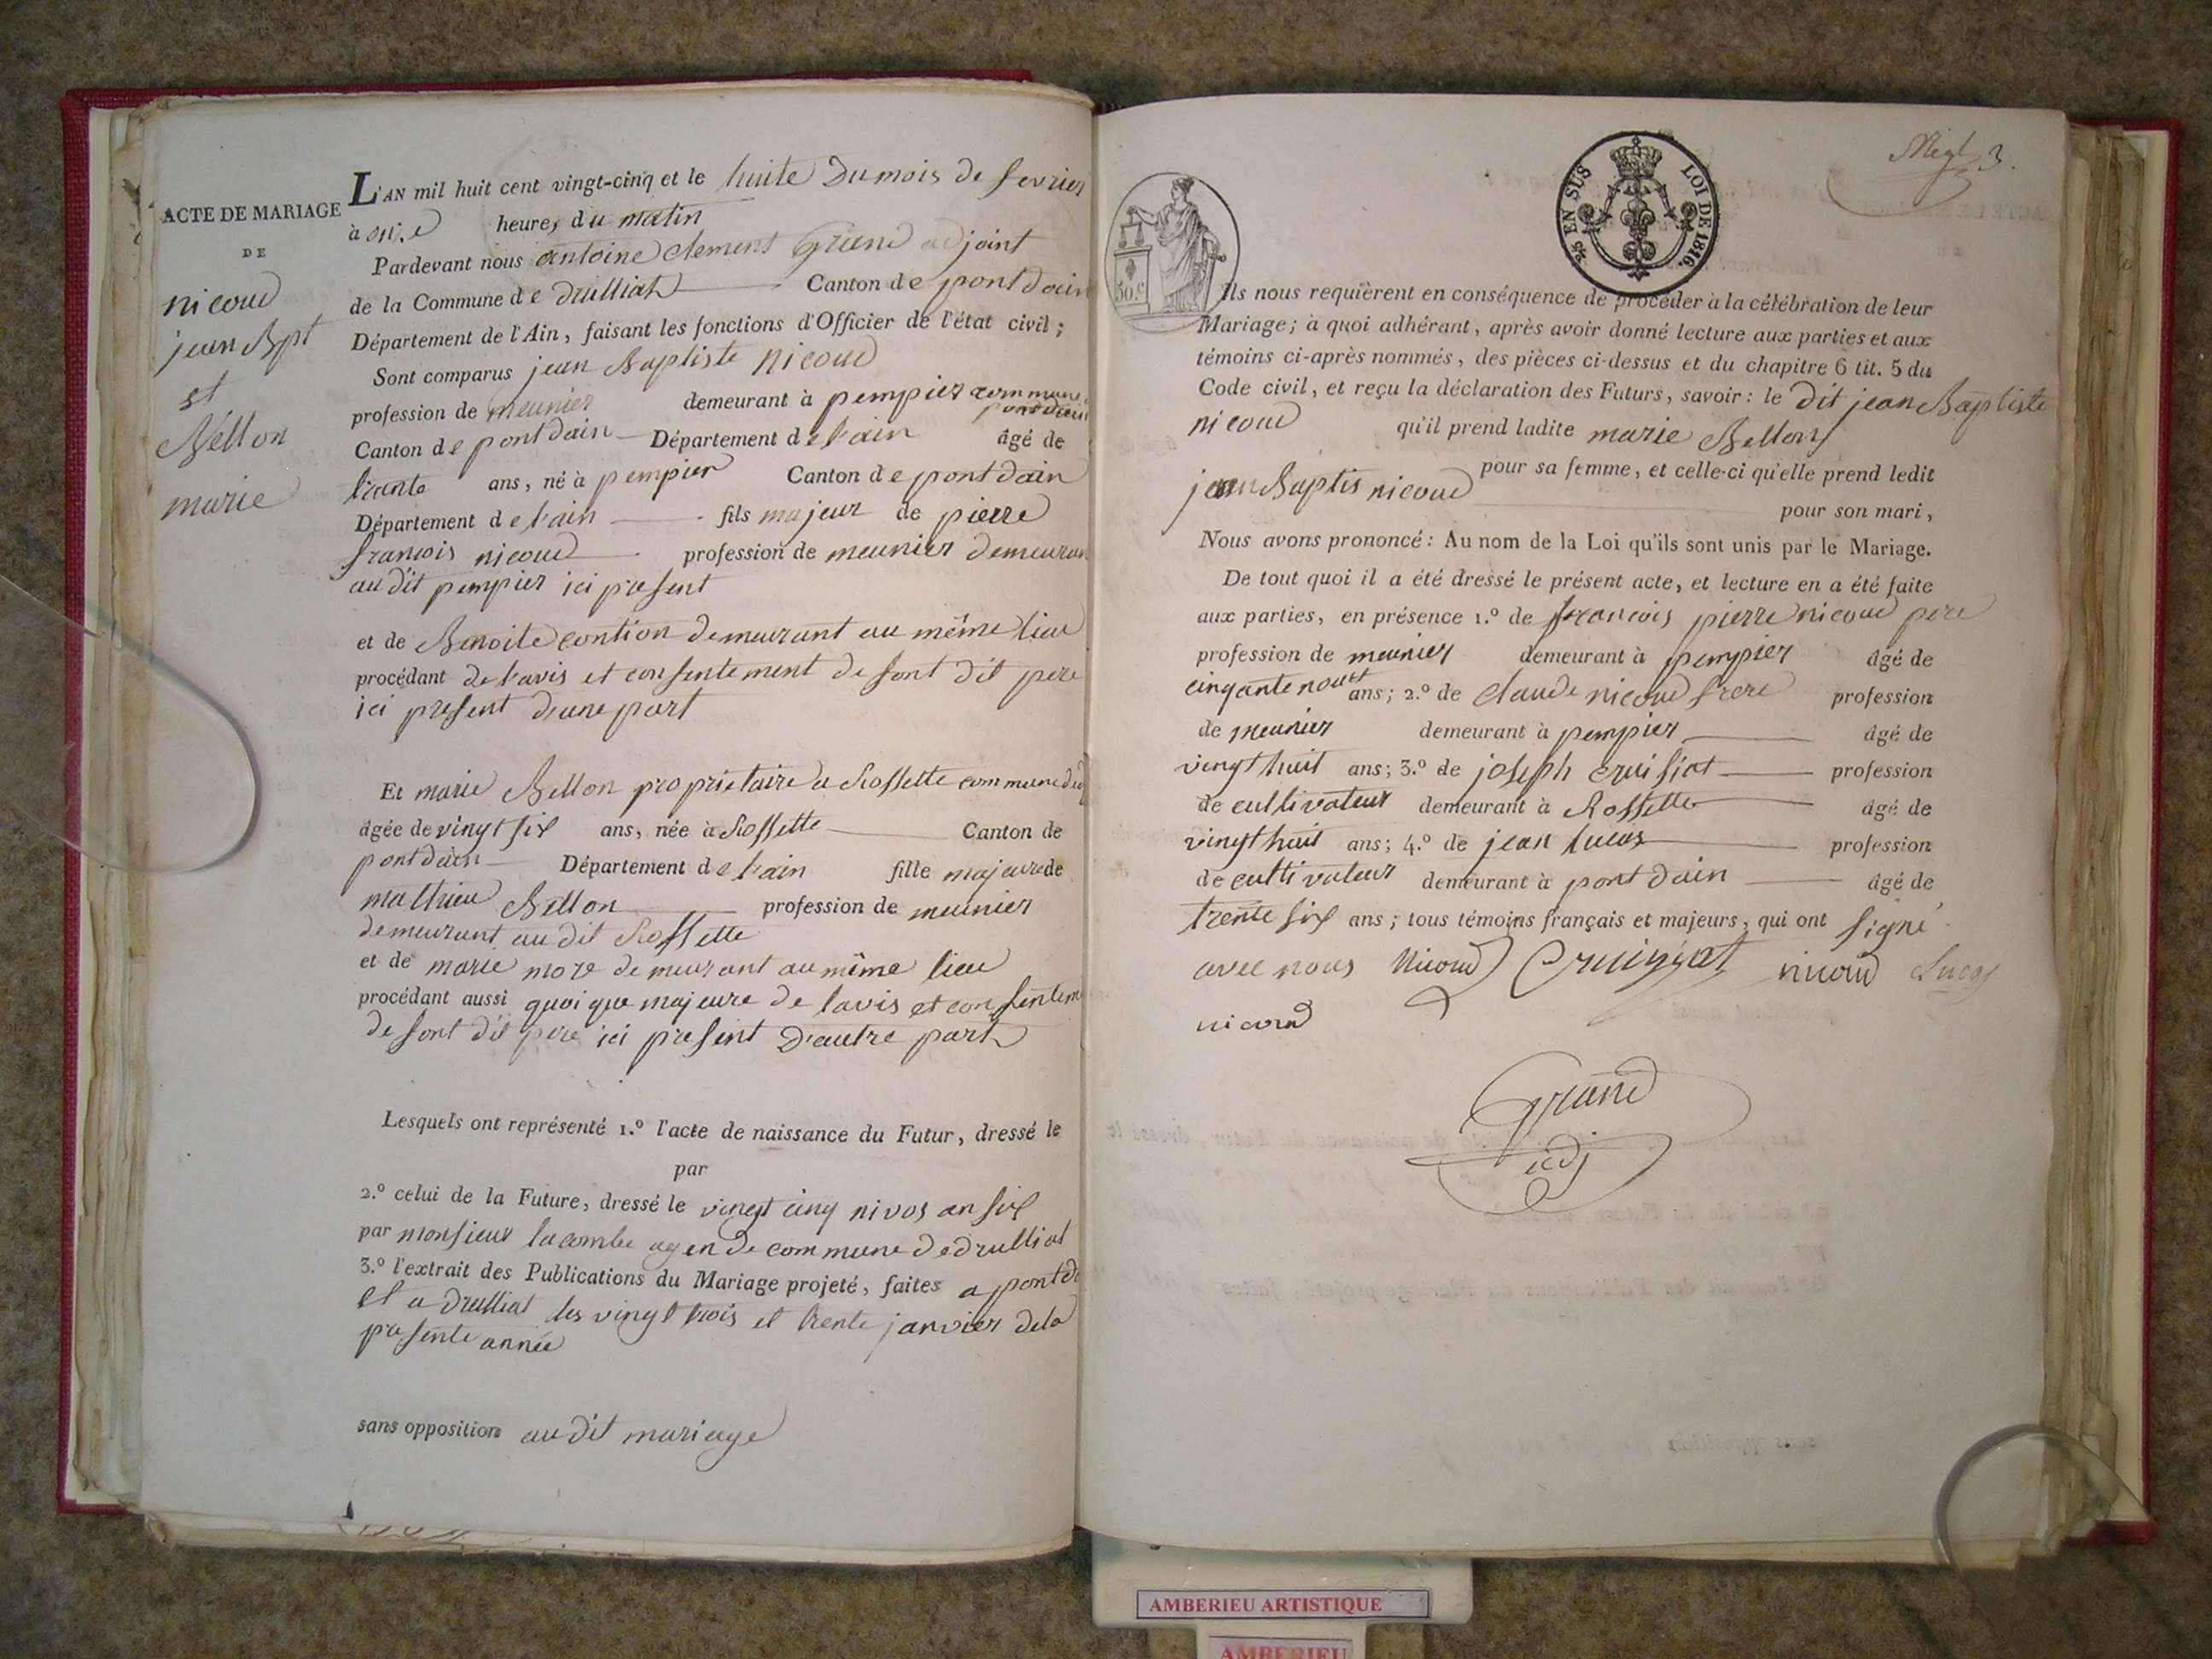 ACTE DE MARIAGE
DE
nicoud
jean Bpt
et
Bellon
marie
L'AN mil huit cent vingt-cinq et le huite Dumois de fevrier
à onze heures du matin
Pardevant nous antoine clement Grand adjoint
de la Commune de druilliat Canton de pont dain
Département de l'Ain, faisant les fonctions d'Officier de l'état civil;
Sont comparus jean Baptiste nicoud
profession de meunier demeurant à pempier commune
Canton de pont dain Département de l'ain âgé de
trante ans, né à pempier Canton de pont dain
Département de l'ain fils majeur de pierre
francois nicoud profession de meunier demeuran
au dit pempier ici present
et de Benoite contion demeurant au même lieu
procédant de l'avis et consentement de sont dit pere
ici present d'une part
Et marie Bellon proprietaire a Rossette commune
âgée de vingt six ans, née à Rossette Canton de
pont dain Département de l'ain fille majeure de
mathieu Bellon profession de meunier
demeurant au dit Rossette
et de marie more demeurant au même lieu
procédant aussi quoique majeure de lavis et consentem
de sont dit pere ici present D'autre part
Lesquels ont représenté 1.º l'acte de naissance du Futur, dressé le
par
2.º celui de la Future, dressé le vingt cinq nivos an six
par monsieur lacombe agen de commune de druilliat
3.º l'extrait des Publications du Mariage projeté, faites a pont d
et a druilliat les vingt trois et trente janvier dela
presente année
sans opposition au dit mariage
3.
50.c
EN SUS LOI DE 1816.
Ils nous requièrent en conséquence de procéder à la célébration de leur
Mariage; à quoi adhérant, après avoir donné lecture aux parties et aux
témoins ci-après nommés, des pièces ci-dessus et du chapitre 6 tit. 5 du
Code civil, et reçu la déclaration des Futurs, savoir: le dit jean Baptiste
nicoud qu'il prend ladite marie Bellon
pour sa femme, et celle-ci qu'elle prend ledit
jean Baptis nicoud
pour son mari,
Nous avons prononcé: Au nom de la Loi qu'ils sont unis par le Mariage.
De tout quoi il a été dressé le présent acte, et lecture en a été faite
aux parties, en présence 1.º de francois pierre nicoud pere
profession de meunier demeurant à pempier âgé de
cinqante nouf ans; 2.º de claude nicoud frere profession
de meunier demeurant à pempier âgé de
vingt huit ans; 3.º de joseph cruisiat profession
de cultivateur demeurant à Rossette âgé de
vingt huit ans; 4.º de jean lucas profession
de cultivateur demeurant à pont dain âgé de
trente six ans; tous témoins français et majeurs, qui ont signé
avec nous Nicoud Cruiziat nicoud Lucas
nicoud
Grand
adj
AMBERIEU ARTISTIQUE
AMBERIEU